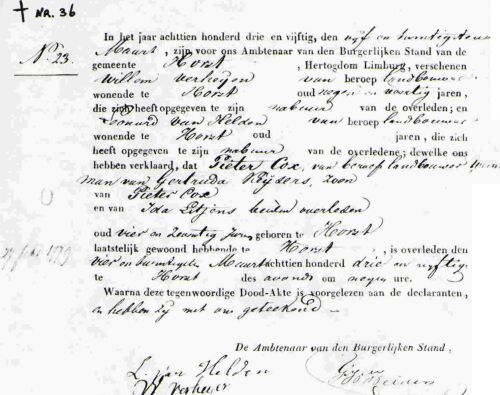 + NR. 36
N° 23.
In het jaar achttien honderd drie en vijftig, den vijf en twintigsten
Maart, zijn voor ons Ambtenaar van den Burgerlijken Stand van de
gemeente Horst, Hertogdom Limburg, verschenen
Willem Verheyen van beroep landbouwer
wonende te Horst oud negen en veertig jaren,
die zich heeft opgegeven te zijn nabuur van de overleden; en
Leonard van Helden van beroep landbouwer
wonende te Horst oud jaren, die zich
heeft opgegeven te zijn nabuur van de overledene; dewelke ons
hebben verklaard, dat Pieter Cox, van beroep landbouwer
man van Gertruda Reijders, zoon
van Pieter Cox
en van Ida beiden overleden
oud vier en zeventig jaren geboren te Horst
laatstelijk gewoond hebbende te Horst, is overleden den
vier en twintigste Maart achttien honderd drie en vijftig
te Horst des avonds om negen ure.
Waarna deze tegenwoordige Dood-Akte is voorgelezen aan de declaranten,
en hebben zij met ons geteekend
De Ambtenaar van den Burgerlijken Stand,
L. van Helden
W Verheijen